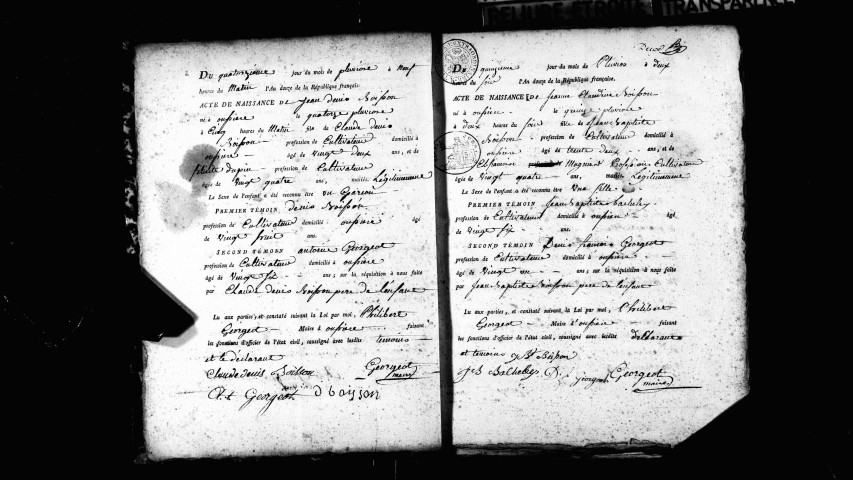 RELIURE ETROITE TRANSPARENCE
Du quatorzieme jour du mois de pluviose à neuf
heures du Matin l'An douze de la République française.
ACTE DE NAISSANCE DE Jean Denis Boisson
né à ousiere le quatorze pluviose
à Cinq heures du Matin fils de Claude Denis
Boisson profession de Cultivateur domicilié à
ousiere âgé de vingt deux ans, et de
profession de Cultivateur
âgée de vingt quatre ans, mariés Légitimement
Le Sexe de l'enfant a été reconnu être un Garcon
PREMIER TÉMOIN Denis Boisson
profession de Cultivateur domicilié ousiere âgé
de vingt huit ans.
SECOND TÉMOIN antoine Georgeot
profession de Cultivateur domicilié à ousiere
âgé de vingt six ans; sur la réquisition à nous faite
par Claude Denis Boisson pere de l'enfant
Lu aux parties, et constaté suivant la Loi par moi, Philibert
Georgeot Maire d'ousiere faisant
les fonctions d'officier de l'état civil, soussigné avec lesdits temoins
et le déclarant
Claude denis Boisson Georgeot
maire
Georgeot D boisson
Du quinzieme jour du mois de Pluvios à deux
heures du soir l'An douze de la République française.
ACTE DE NAISSANCE DE Jeanne Claudine Boisson
né à ousiere le quinze pluviose
à deux heures du soir fille de Jean Baptiste
Boisson profession de Cultivateur domicilié à
ousiere âgé de trente deux ans, et de
Magnien Profession Cultivateur
âgée de Vingt quatre ans, mariés Légitimement
Le Sexe de l'enfant a été reconnu être Une fille
PREMIER TÉMOIN Jean Baptiste Bacheley
profession de Cultivateur domicilié à ousiere âgé
de Vingt six ans.
SECOND TÉMOIN Denis francois Georgeot
profession de Cultivateur domicilié à ousiere
âgé de Vingt un ans; sur la réquisition à nous faite
par Jean Baptiste Boisson pere de l'enfant
Lu aux parties, et constaté suivant la Loi par moi, Philibert
Georgeot Maire d'ousiere faisant
les fonctions d'officier de l'état civil, soussigné avec lesdits declarant
et temoins Boisson
JB Bacheley D. f. georgeot Georgeot
maire